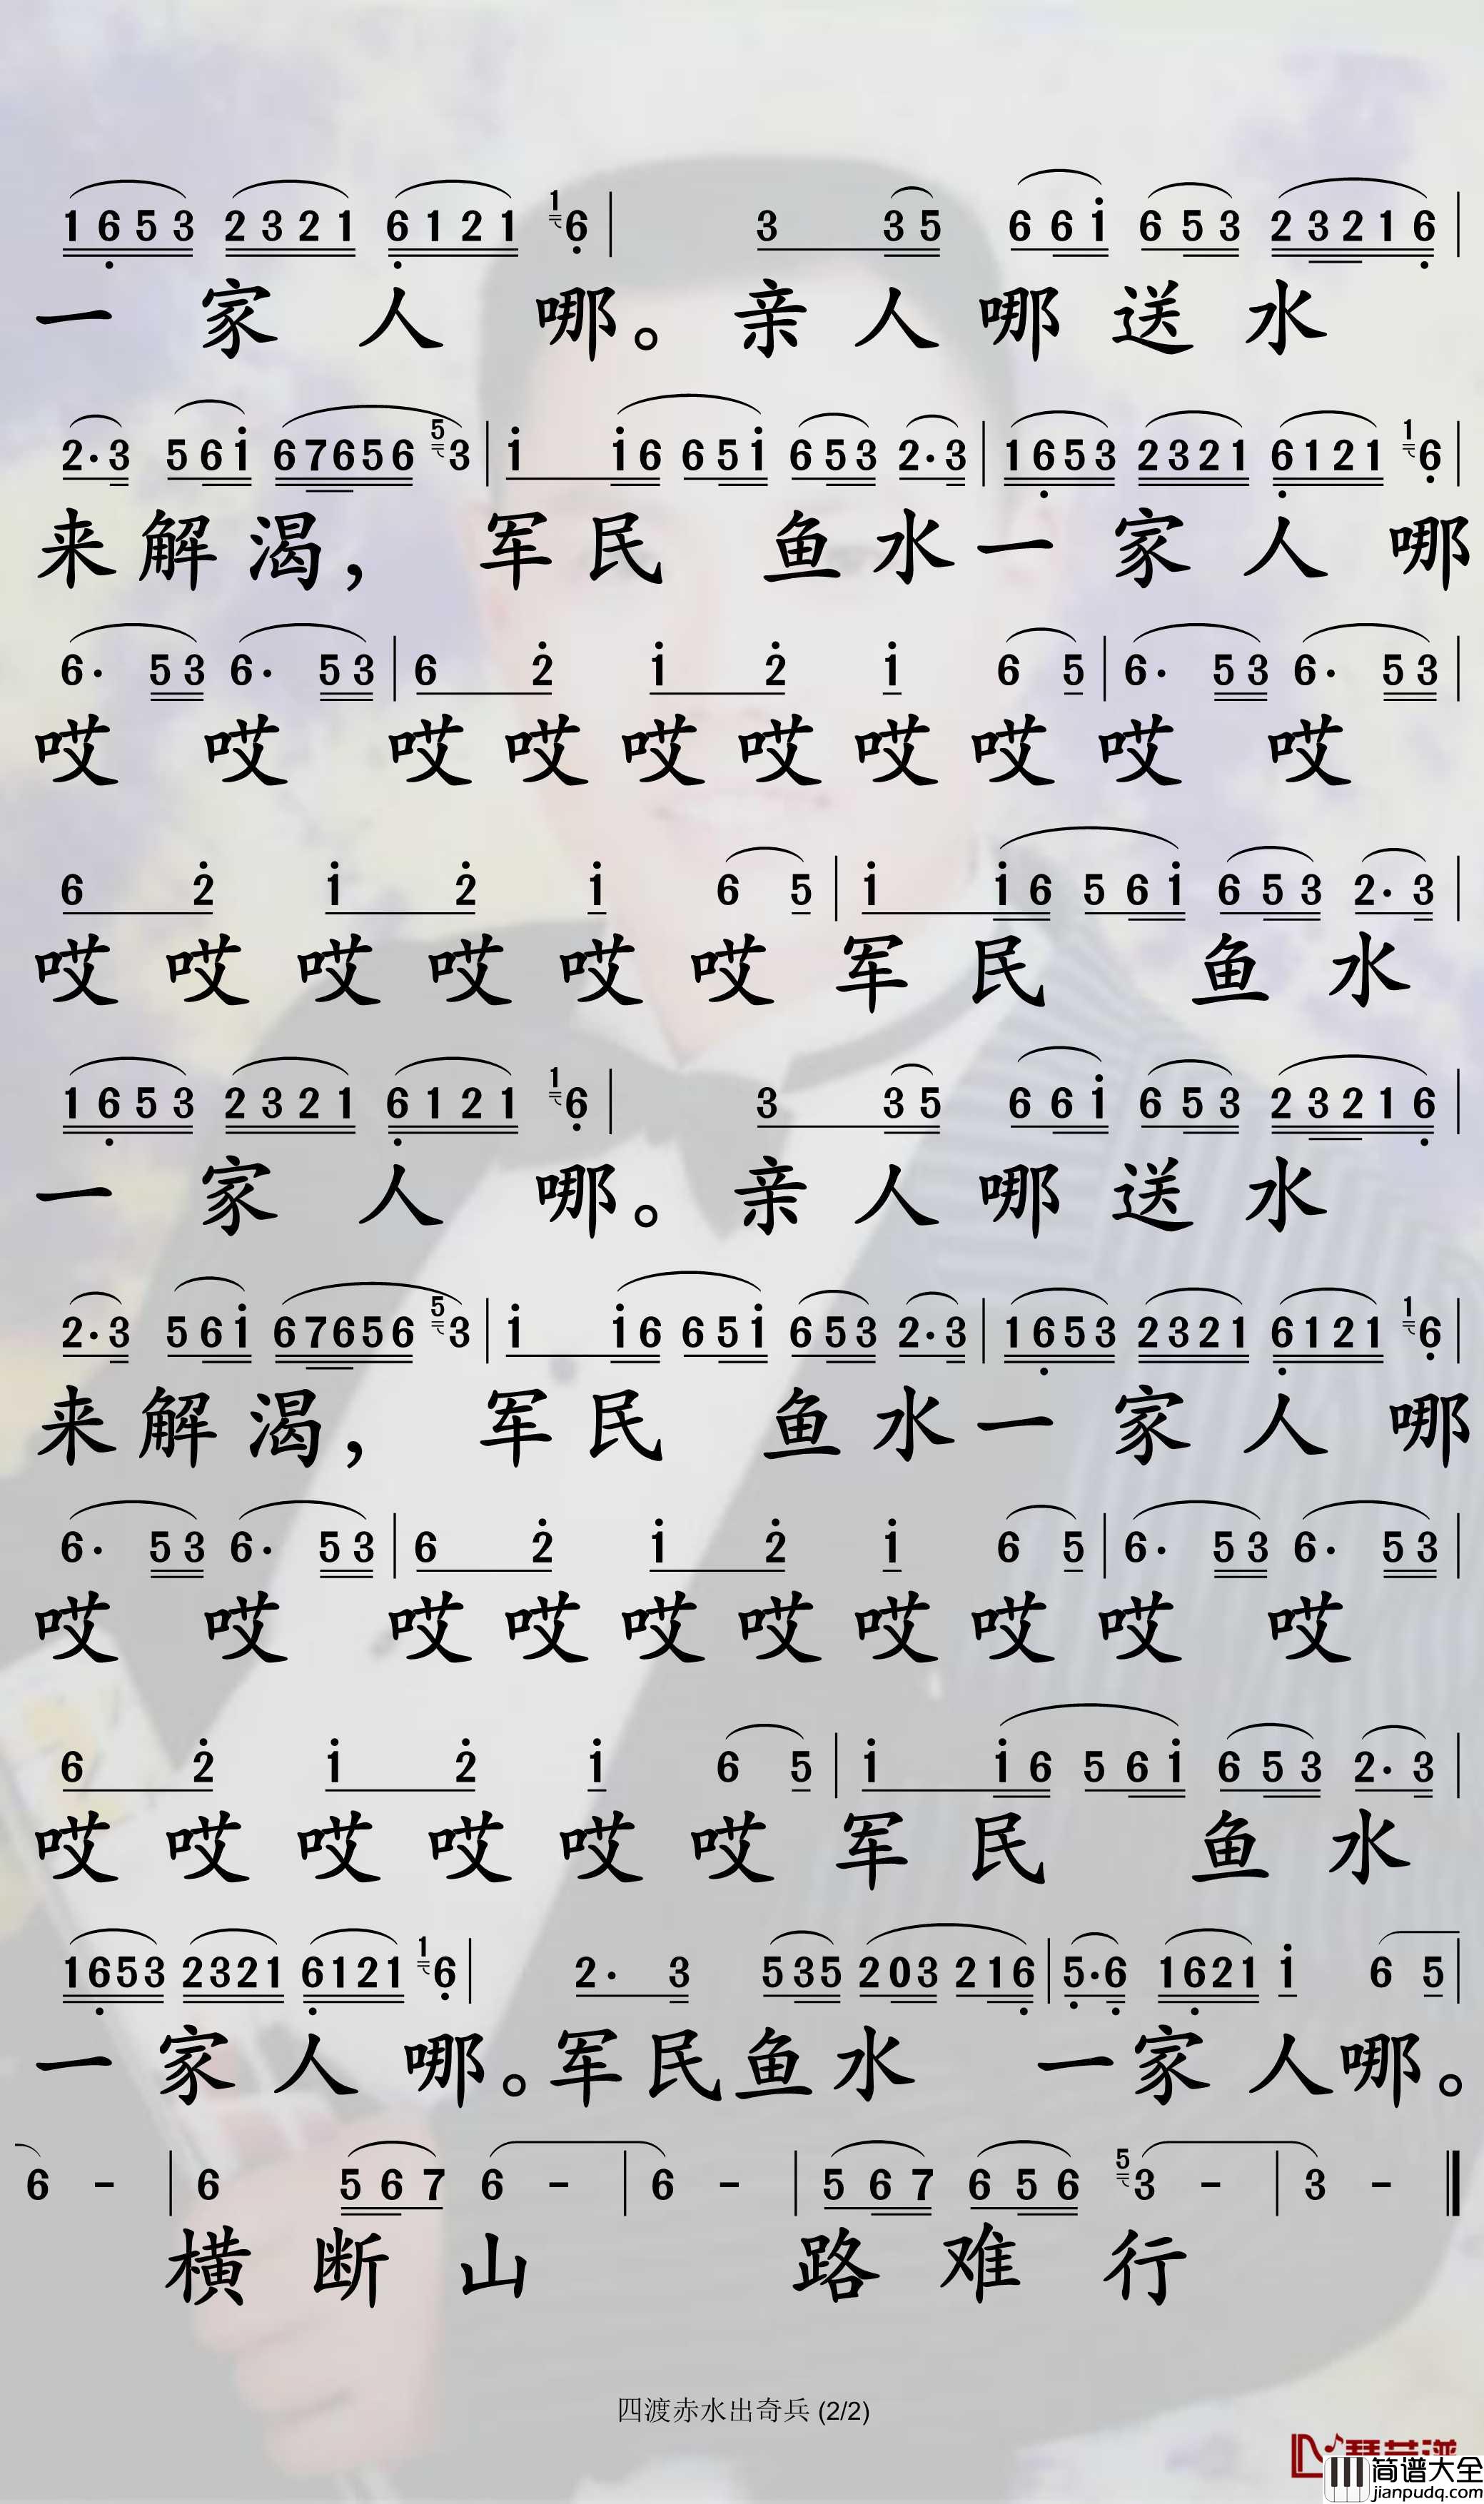 1 6 5 3 2 3 2 1 6 1 2 1 1 6 | 3 3 5 6 6 i 6 5 3 2 3 2 1 6 |
一 家 人 哪。亲 人 哪 送 水
2 · 3 5 6 i 6 7 6 5 6 5 3 | i i 6 6 5 i 6 5 3 2 · 3 | 1 6 5 3 2 3 2 1 6 1 2 1 1 6 |
来 解 渴， 军 民 鱼 水 一 家 人 哪
6 · 5 3 6 · 5 3 | 6 2 i 2 i 6 5 | 6 · 5 3 6 · 5 3 |
哎 哎 哎 哎 哎 哎 哎 哎 哎 哎
6 2 i 2 i 6 5 | i i 6 5 6 i 6 5 3 2 · 3 |
哎 哎 哎 哎 哎 哎 军 民 鱼 水
1 6 5 3 2 3 2 1 6 1 2 1 1 6 | 3 3 5 6 6 i 6 5 3 2 3 2 1 6 |
一 家 人 哪。亲 人 哪 送 水
2 · 3 5 6 i 6 7 6 5 6 5 3 | i i 6 6 5 i 6 5 3 2 · 3 | 1 6 5 3 2 3 2 1 6 1 2 1 1 6 |
来 解 渴， 军 民 鱼 水 一 家 人 哪
6 · 5 3 6 · 5 3 | 6 2 i 2 i 6 5 | 6 · 5 3 6 · 5 3 |
哎 哎 哎 哎 哎 哎 哎 哎 哎 哎
6 2 i 2 i 6 5 | i i 6 5 6 i 6 5 3 2 · 3 |
哎 哎 哎 哎 哎 哎 军 民 鱼 水
1 6 5 3 2 3 2 1 6 1 2 1 1 6 | 2 · 3 5 3 5 2 0 3 2 1 6 | 5 · 6 1 6 2 1 i 6 5 |
一 家 人 哪。军 民 鱼 水 一 家 人 哪。
6 - | 6 5 6 7 6 - | 6 - | 5 6 7 6 5 6 5 3 - | 3 - ‖
横 断 山 路 难 行
四渡赤水出奇兵 (2/2)
简谱大全
jianpudq.com